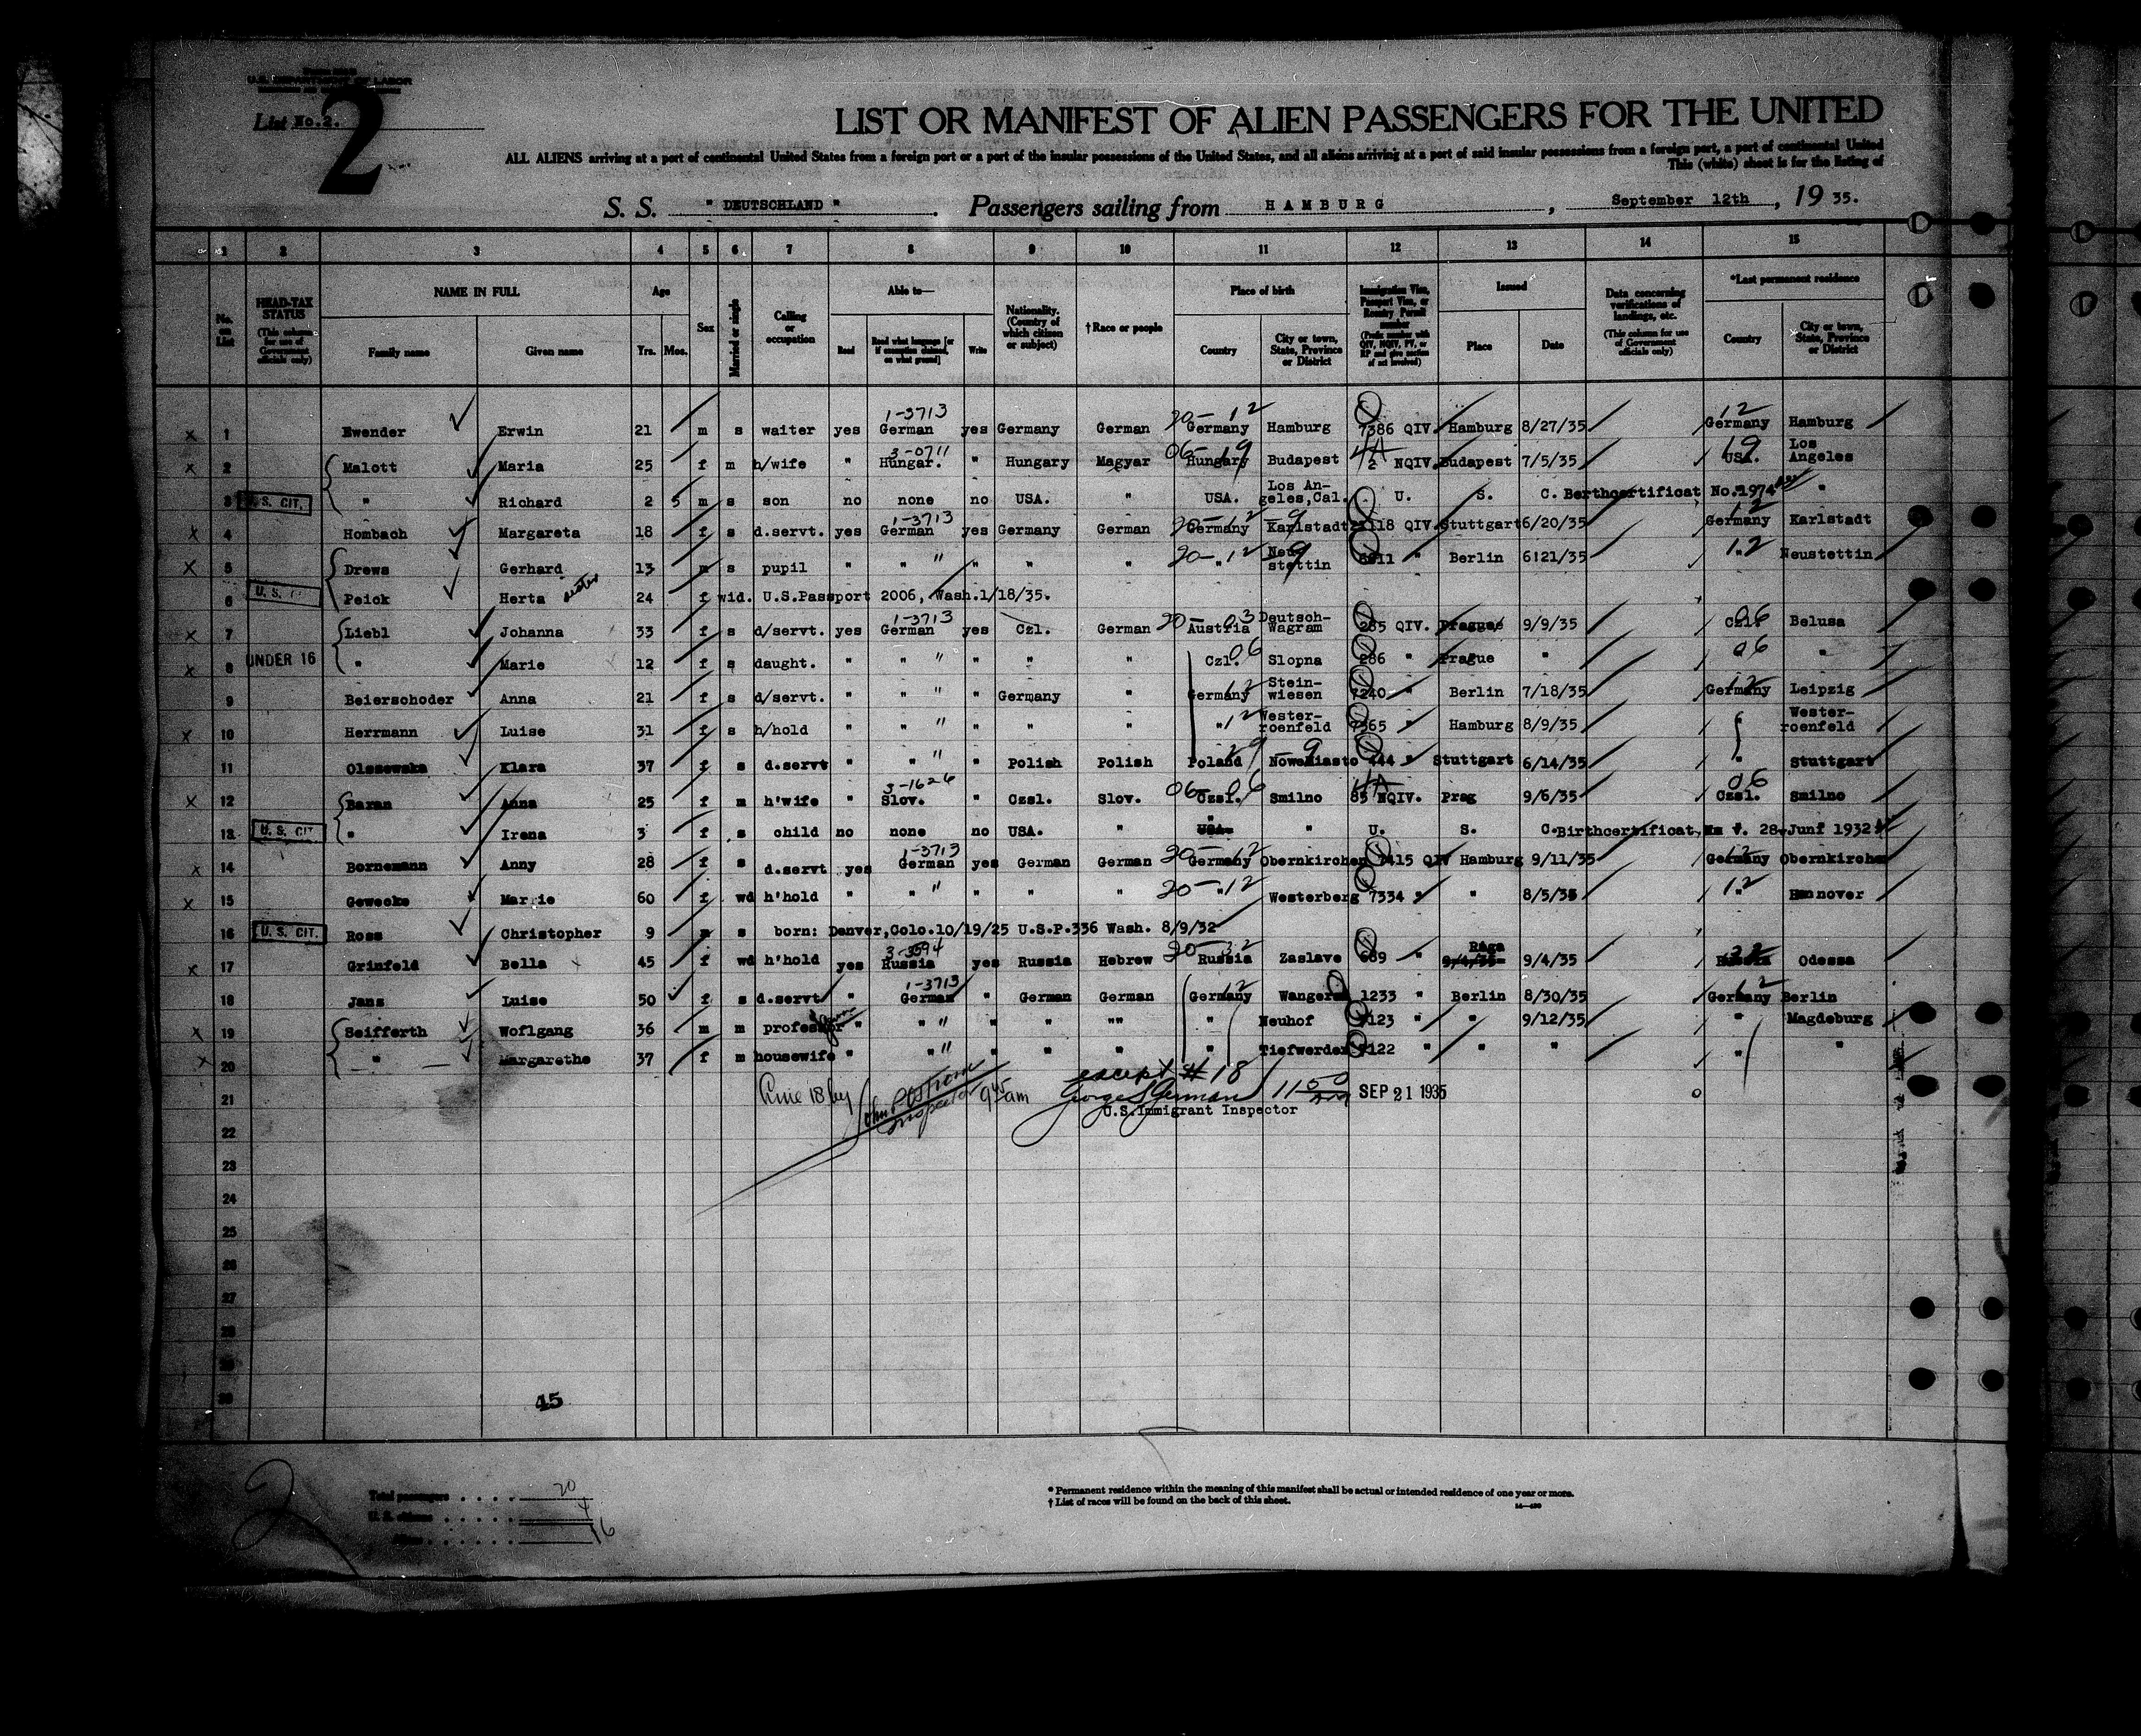 U.S. DEPARTMENT OF LABOR
List No.2.
2
LIST OR MANIFEST OF ALIEN PASSENGERS FOR THE UNITED
ALL ALIENS arriving at a port of continental United States from a foreign port or a port of the insular possessions of the United States, and all aliens arriving at a port of said insular possessions from a foreign port, a port of continental United
This (white) sheet is for the listing of
S. S. " DEUTSCHLAND " . Passengers sailing from HAMBURG , September 12th , 19 35.
1 2 3 4 5 6 7 8 9 10 11 12 13 14 15
No. on List
HEAD-TAX STATUS (This column for use of Government officials only)
NAME IN FULL Family name Given name
Age Yrs. Mos.
Sex
Married or single
Calling or occupation
Able to— Read Read what language [or if exemption claimed, on what ground] Write
Nationality. (Country of which citizen or subject)
†Race or people
Place of birth Country City or town, State, Province or District
Immigration Visa, Passport Visa, or Reentry Permit number (Prefix number with QIV, NQIV, PV, or RP and give section of act involved)
Issued Place Date
Data concerning verifications of landings, etc. (This column for use of Government officials only)
*Last permanent residence Country City or town, State, Province or District
1-3713 20- 12 12
x 1 Ewender Erwin 21 m s waiter yes German yes Germany German Germany Hamburg 7386 QIV. Hamburg 8/27/35 Germany Hamburg
3-0711 06- 19 4A 19
x 2 Malott Maria 25 f m h/wife " Hungar. " Hungary Magyar Hungary Budapest 2 NQIV. Budapest 7/5/35 USA. Los Angeles
3 U.S. CIT. " Richard 2 5 m s son no none no USA. " USA. Los Angeles,Cal. U. S. C. Berthcertificat No.1974 "
1-3713 20- 12 - 9 12
x 4 Hombach Margareta 18 f s d.servt. yes German yes Germany German Germany Karlstadt 118 QIV. Stuttgart 6/20/35 Germany Karlstadt
20- 12 9 12
x 5 Drews Gerhard 13 m s pupil " " " " " " Neustettin Berlin 6:21/35 " Neustettin
6 U.S. CIT. Peick Herta sister 24 f wid. U.S.Passport 2006, Wash.1/18/35.
1-3713 20- 03 06
x 7 Liebl Johanna 33 f s d/servt. yes German yes Czl. German Austria Deutsch-Wagram 285 QIV. Prague 9/9/35 Czl. Belusa
06 06
x 8 UNDER 16 " Marie 12 f s daught. " " " " " Czl. Slopna 286 " Prague " "
12 12
9 Beierschoder Anna 21 f s d/servt. " " " Germany " Germany Steinwiesen 7240 " Berlin 7/18/35 Germany Leipzig
12
x 10 Herrmann Luise 31 f s h/hold " " " " " " Westerroenfeld 7365 " Hamburg 8/9/35 Westerroenfeld
29 - 9
11 Olszewska Klara 37 f s d.servt " " " Polish Polish Poland Nowemiasto 444 " Stuttgart 6/14/35 " Stuttgart
3-1626 06- 06 4A 06
x 12 Baran Anna 25 f m h'wife " Slov. " Czsl. Slov. Czsl. Smilno 85 NQIV. Prag 9/6/35 Czsl. Smilno
13 U.S. CIT " Irena 3 f s child no none no USA. " USA. " U. S. C. Birthcertificat, 28. Junf 1932
1-3713 20- 12 12
x 14 Bornemann Anny 28 f s d.servt yes German yes German German Germany Obernkirchen 7415 QIV Hamburg 9/11/35 Germany Obernkirchen
20- 12 12
x 15 Gewecke Marrie 60 f wd h'hold " " " " " " Westerberg 7334 " " 8/5/35 " Hannover
16 U.S. CIT. Ross Christopher 9 m s born: Denver,Colo.10/19/25 U.S.P.336 Wash. 8/9/32
3-3594 20- 32 32
x 17 Grinfeld Bella 45 f wd h'hold yes Russia yes Russia Hebrew Russia Zaslave 689 " Raga 9/4/35 9/4/35 Russia Odessa
1-3713 12 12
18 Jans Luise 50 f s d.servt " German " German German Germany Wangerin 1233 " Berlin 8/30/35 Germany Berlin
x 19 Seifferth Woflgang 36 m m professor " " " " "" " Neuhof 123 " " 9/12/35 " Magdeburg
x 20 " Margarethe 37 f m housewife " " " " " " Tiefwerder 122 " " " " "
except # 18
21 Line 18 by Inspector 9 45 am George S German 11 50 am SEP 21 1935
U.S.Immigrant Inspector
22
23
24
25
26
27
28
29
30
45
2
Total passengers . . . . 20
U. S. citizens . . . . . 4
Aliens . . . . . . 16
* Permanent residence within the meaning of this manifest shall be actual or intended residence of one year or more.
† List of races will be found on the back of this sheet.